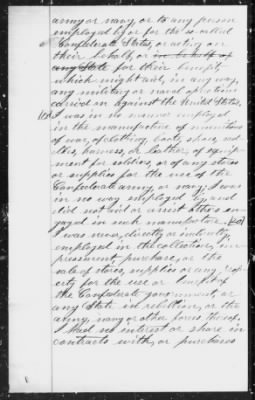 army or navy or to any person
employed by or for the so called
Confederate States, or acting on
their behalf, or in behalf of
any State for their benefit,
which might aid, in any way,
any military or naval operations
carried on against the United States.
I was in no manner employed
in the manufacture of munitions
of war, of clothing, boots, shoes, sad
dles, harness, or leather, of equip-
ment for soldiers, or of any stores
or supplies for the use of the
Confederate army or navy; I was
in no way employed by and
did not aid or assist others en-
gaged in such manufacture.
I was never, directly or indirectly,
employed in the collection, im-
pressment, purchase, or the
sale of stores, supplies or any prop-
erty for the use or benefit of
the Confederate government, or
any State in rebellion, or the
army, navy or other forces thereof.
I had no interest or share in
contracts with, or purchases